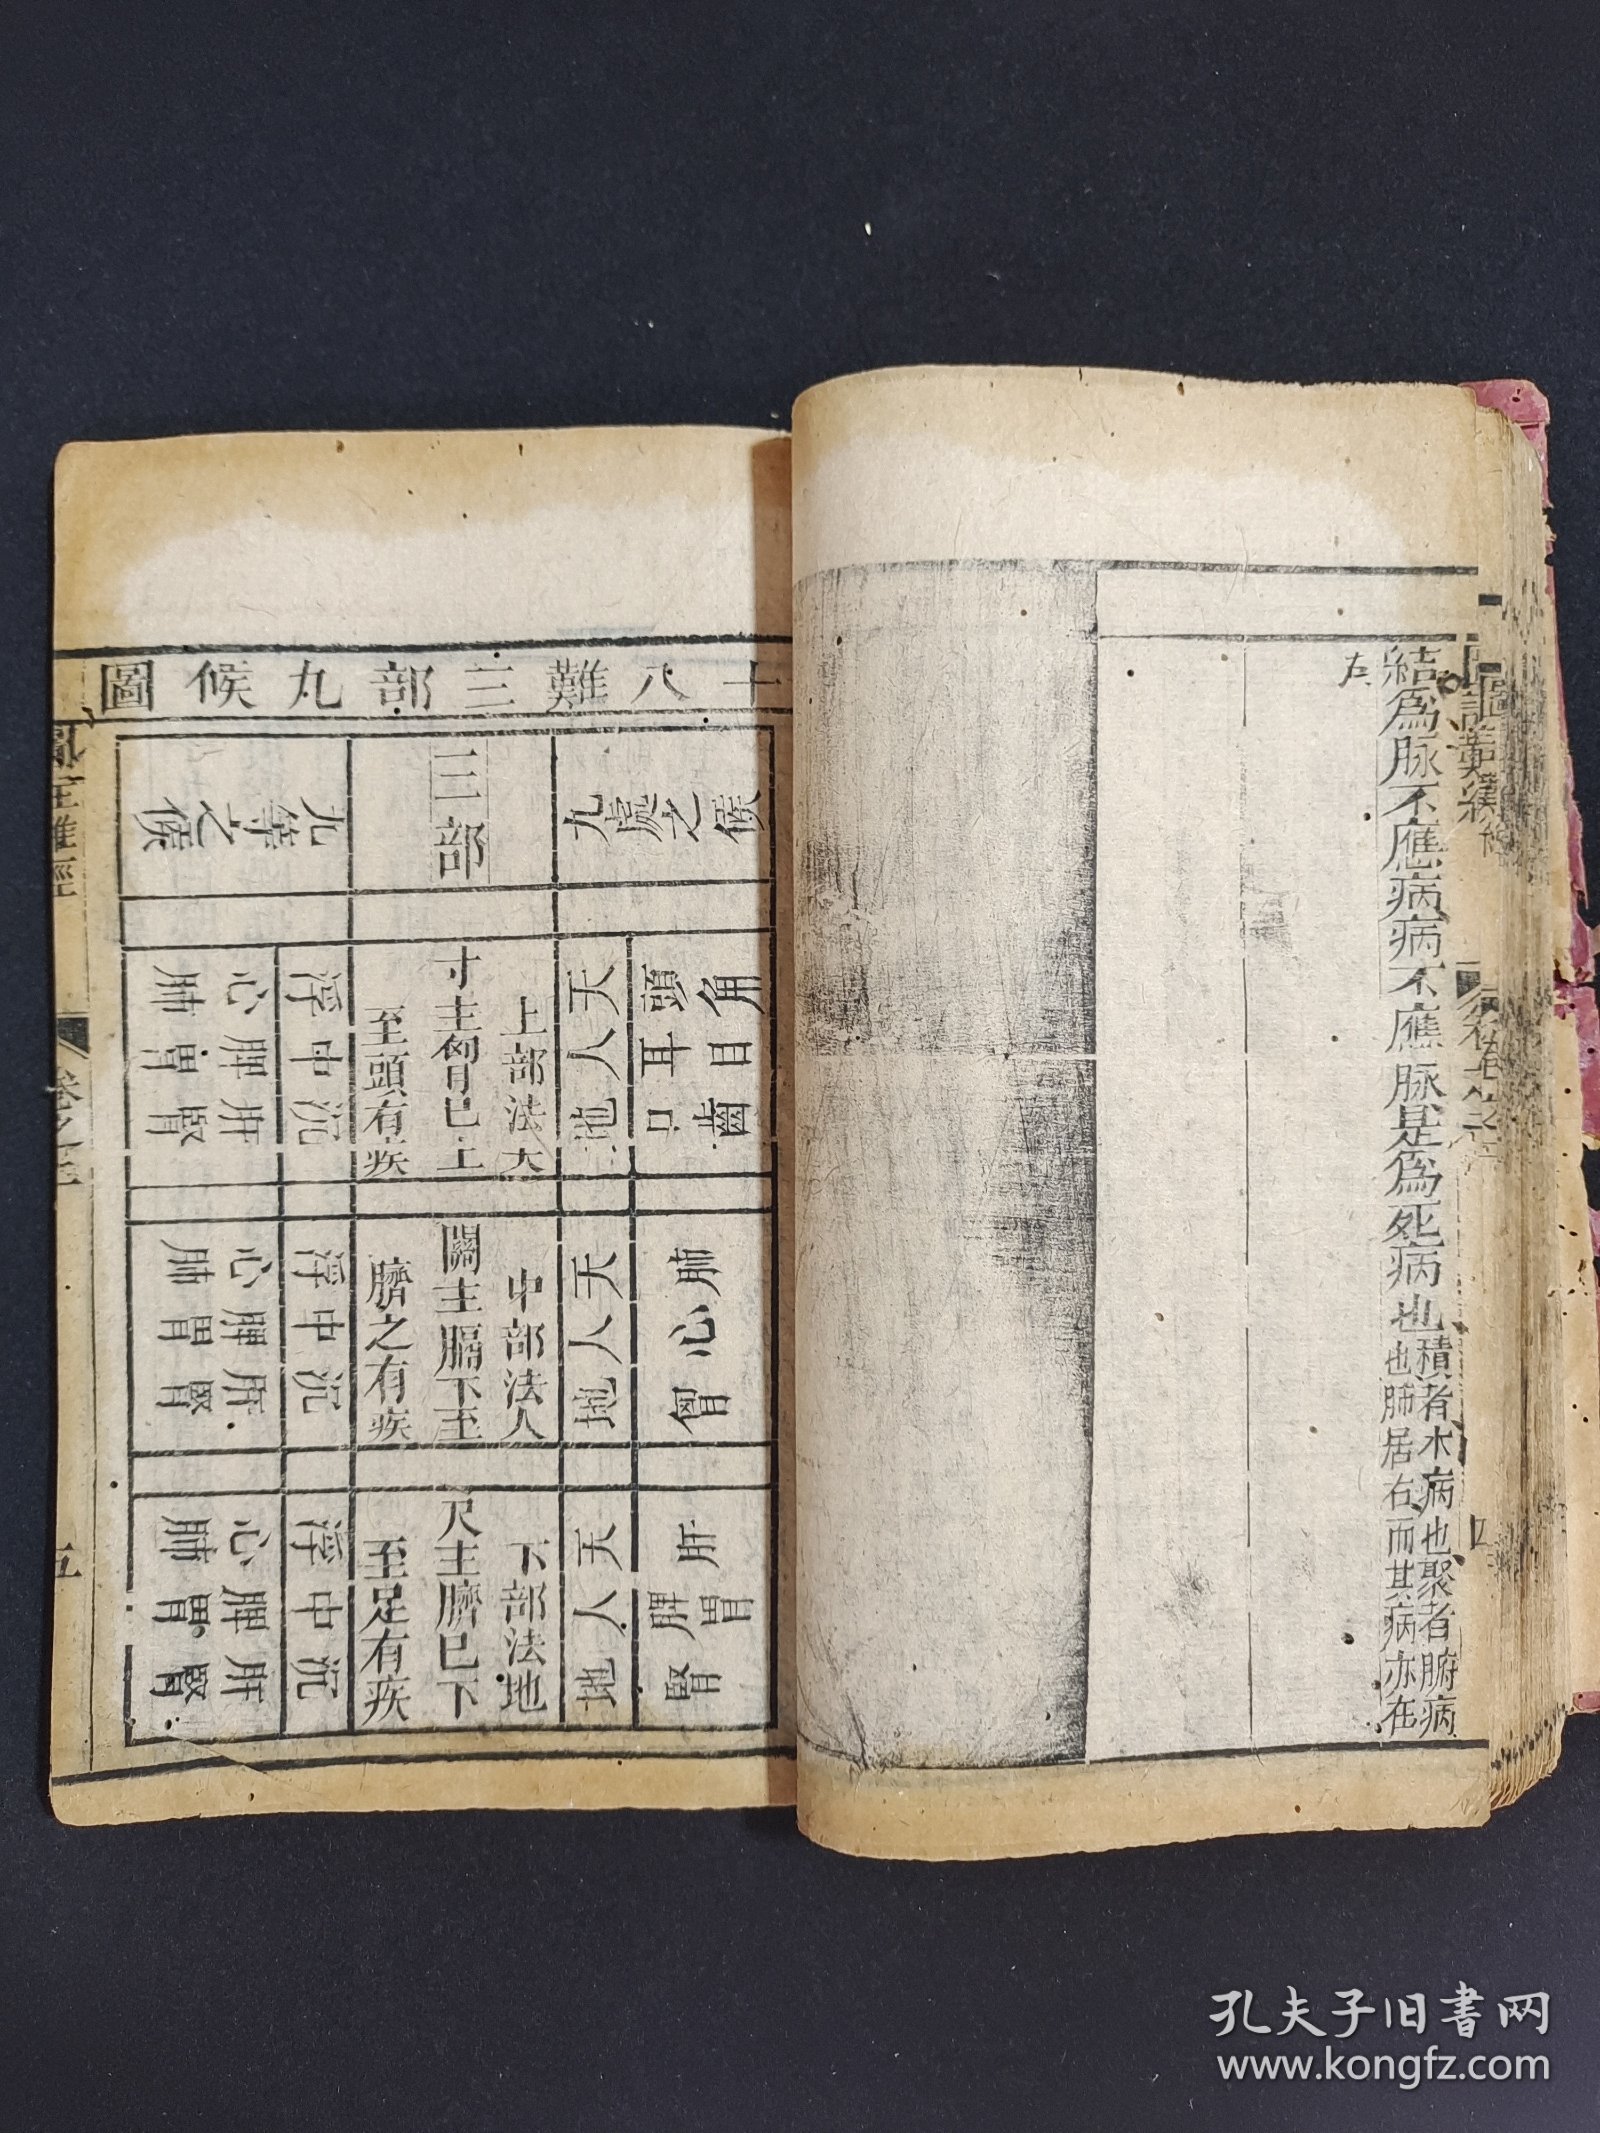 結爲脉不應病病不應脉是爲死病也
積者木病也聚者腑病
也肺居右而其病亦在
左
四
十八難三部九候圖
九處之候
三部
九等之候
角 目 齒
頭 耳 口
天 人 地
上部法天
寸主匈已上
至頭有疾
浮 中 沉
心 脾 肝
肺 胃 腎
肺 心
天 人 地
中部法人
關主膈下至
臍之有疾
浮 中 沉
心 脾 肝
肺 胃 腎
肝 脾 胃 腎
天 人 地
下部法地
尺主臍已下
至足有疾
浮 中 沉
心 脾 肝
肺 胃 腎
圖註難經
卷之五
五
孔夫子旧书网
www.kongfz.com